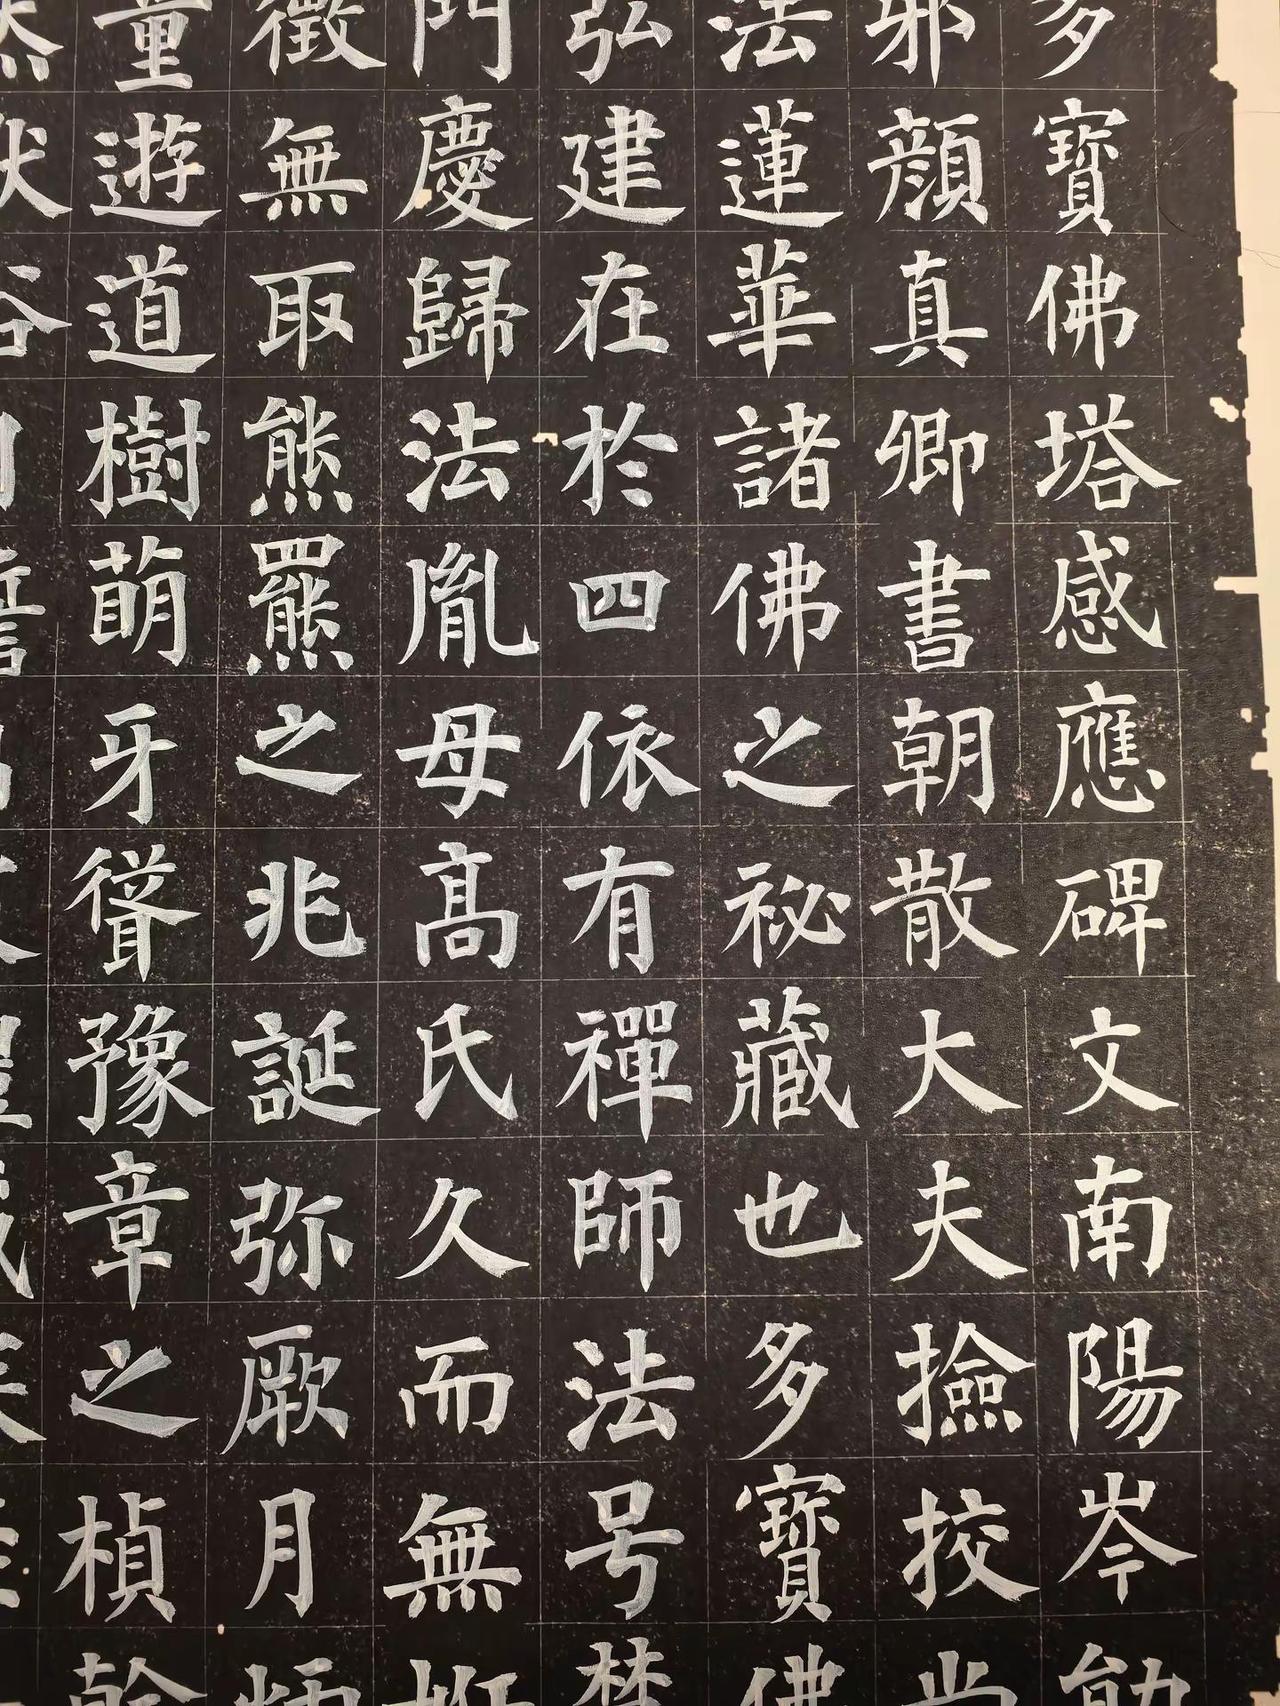 多寶佛塔感應碑文南陽岑勛
邪顔真卿書朝散大夫撿挍尚
法蓮華諸佛之秘藏也多寶佛
弘建在於四依有禪師法号楚
門慶歸法胤母髙氏久而無姙
徵無取熊羆之兆誕弥厥月炳
童遊道樹萌牙聳豫章之楨幹